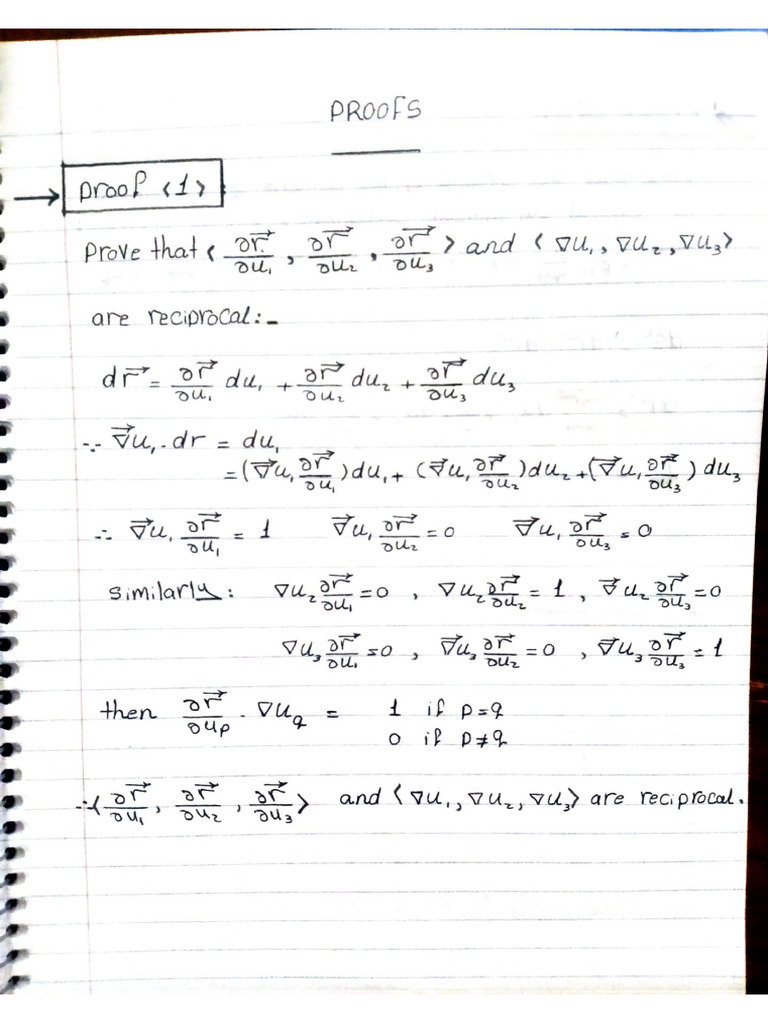 PROOFS
Proof <1>
Prove that < ∂r⃗/∂u₁ , ∂r⃗/∂u₂ , ∂r⃗/∂u₃ > and < ∇u₁ , ∇u₂ , ∇u₃ >
are reciprocal:-
dr⃗ = ∂r⃗/∂u₁ du₁ + ∂r⃗/∂u₂ du₂ + ∂r⃗/∂u₃ du₃
∵ ∇⃗u₁ . dr = du₁
= (∇⃗u₁ ∂r⃗/∂u₁) du₁ + (∇⃗u₁ ∂r⃗/∂u₂) du₂ + (∇⃗u₁ ∂r⃗/∂u₃) du₃
∴ ∇⃗u₁ ∂r⃗/∂u₁ = 1 ∇⃗u₁ ∂r⃗/∂u₂ = 0 ∇⃗u₁ ∂r⃗/∂u₃ = 0
Similarly: ∇u₂ ∂r⃗/∂u₁ = 0 , ∇u₂ ∂r⃗/∂u₂ = 1 , ∇⃗u₂ ∂r⃗/∂u₃ = 0
∇u₃ ∂r⃗/∂u₁ = 0 , ∇⃗u₃ ∂r⃗/∂u₂ = 0 , ∇⃗u₃ ∂r⃗/∂u₃ = 1
then ∂r⃗/∂uₚ . ∇u_q = 1 if p = q
0 if p ≠ q
∴ < ∂r⃗/∂u₁ , ∂r⃗/∂u₂ , ∂r⃗/∂u₃ > and < ∇u₁ , ∇u₂ , ∇u₃ > are reciprocal.